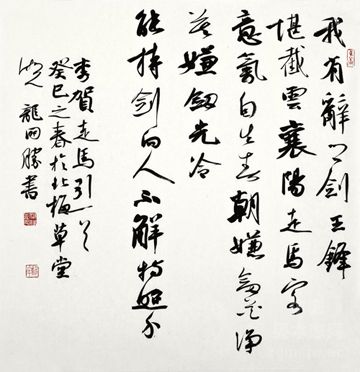 我有辭鄉劍玉鋒
堪截雲襄陽走馬客
意氣自生春朝嫌劍花淨
暮嫌劍光冷
能持劍向人不解持照身
李賀走馬引一首
癸巳之春於北草堂
龍開勝書